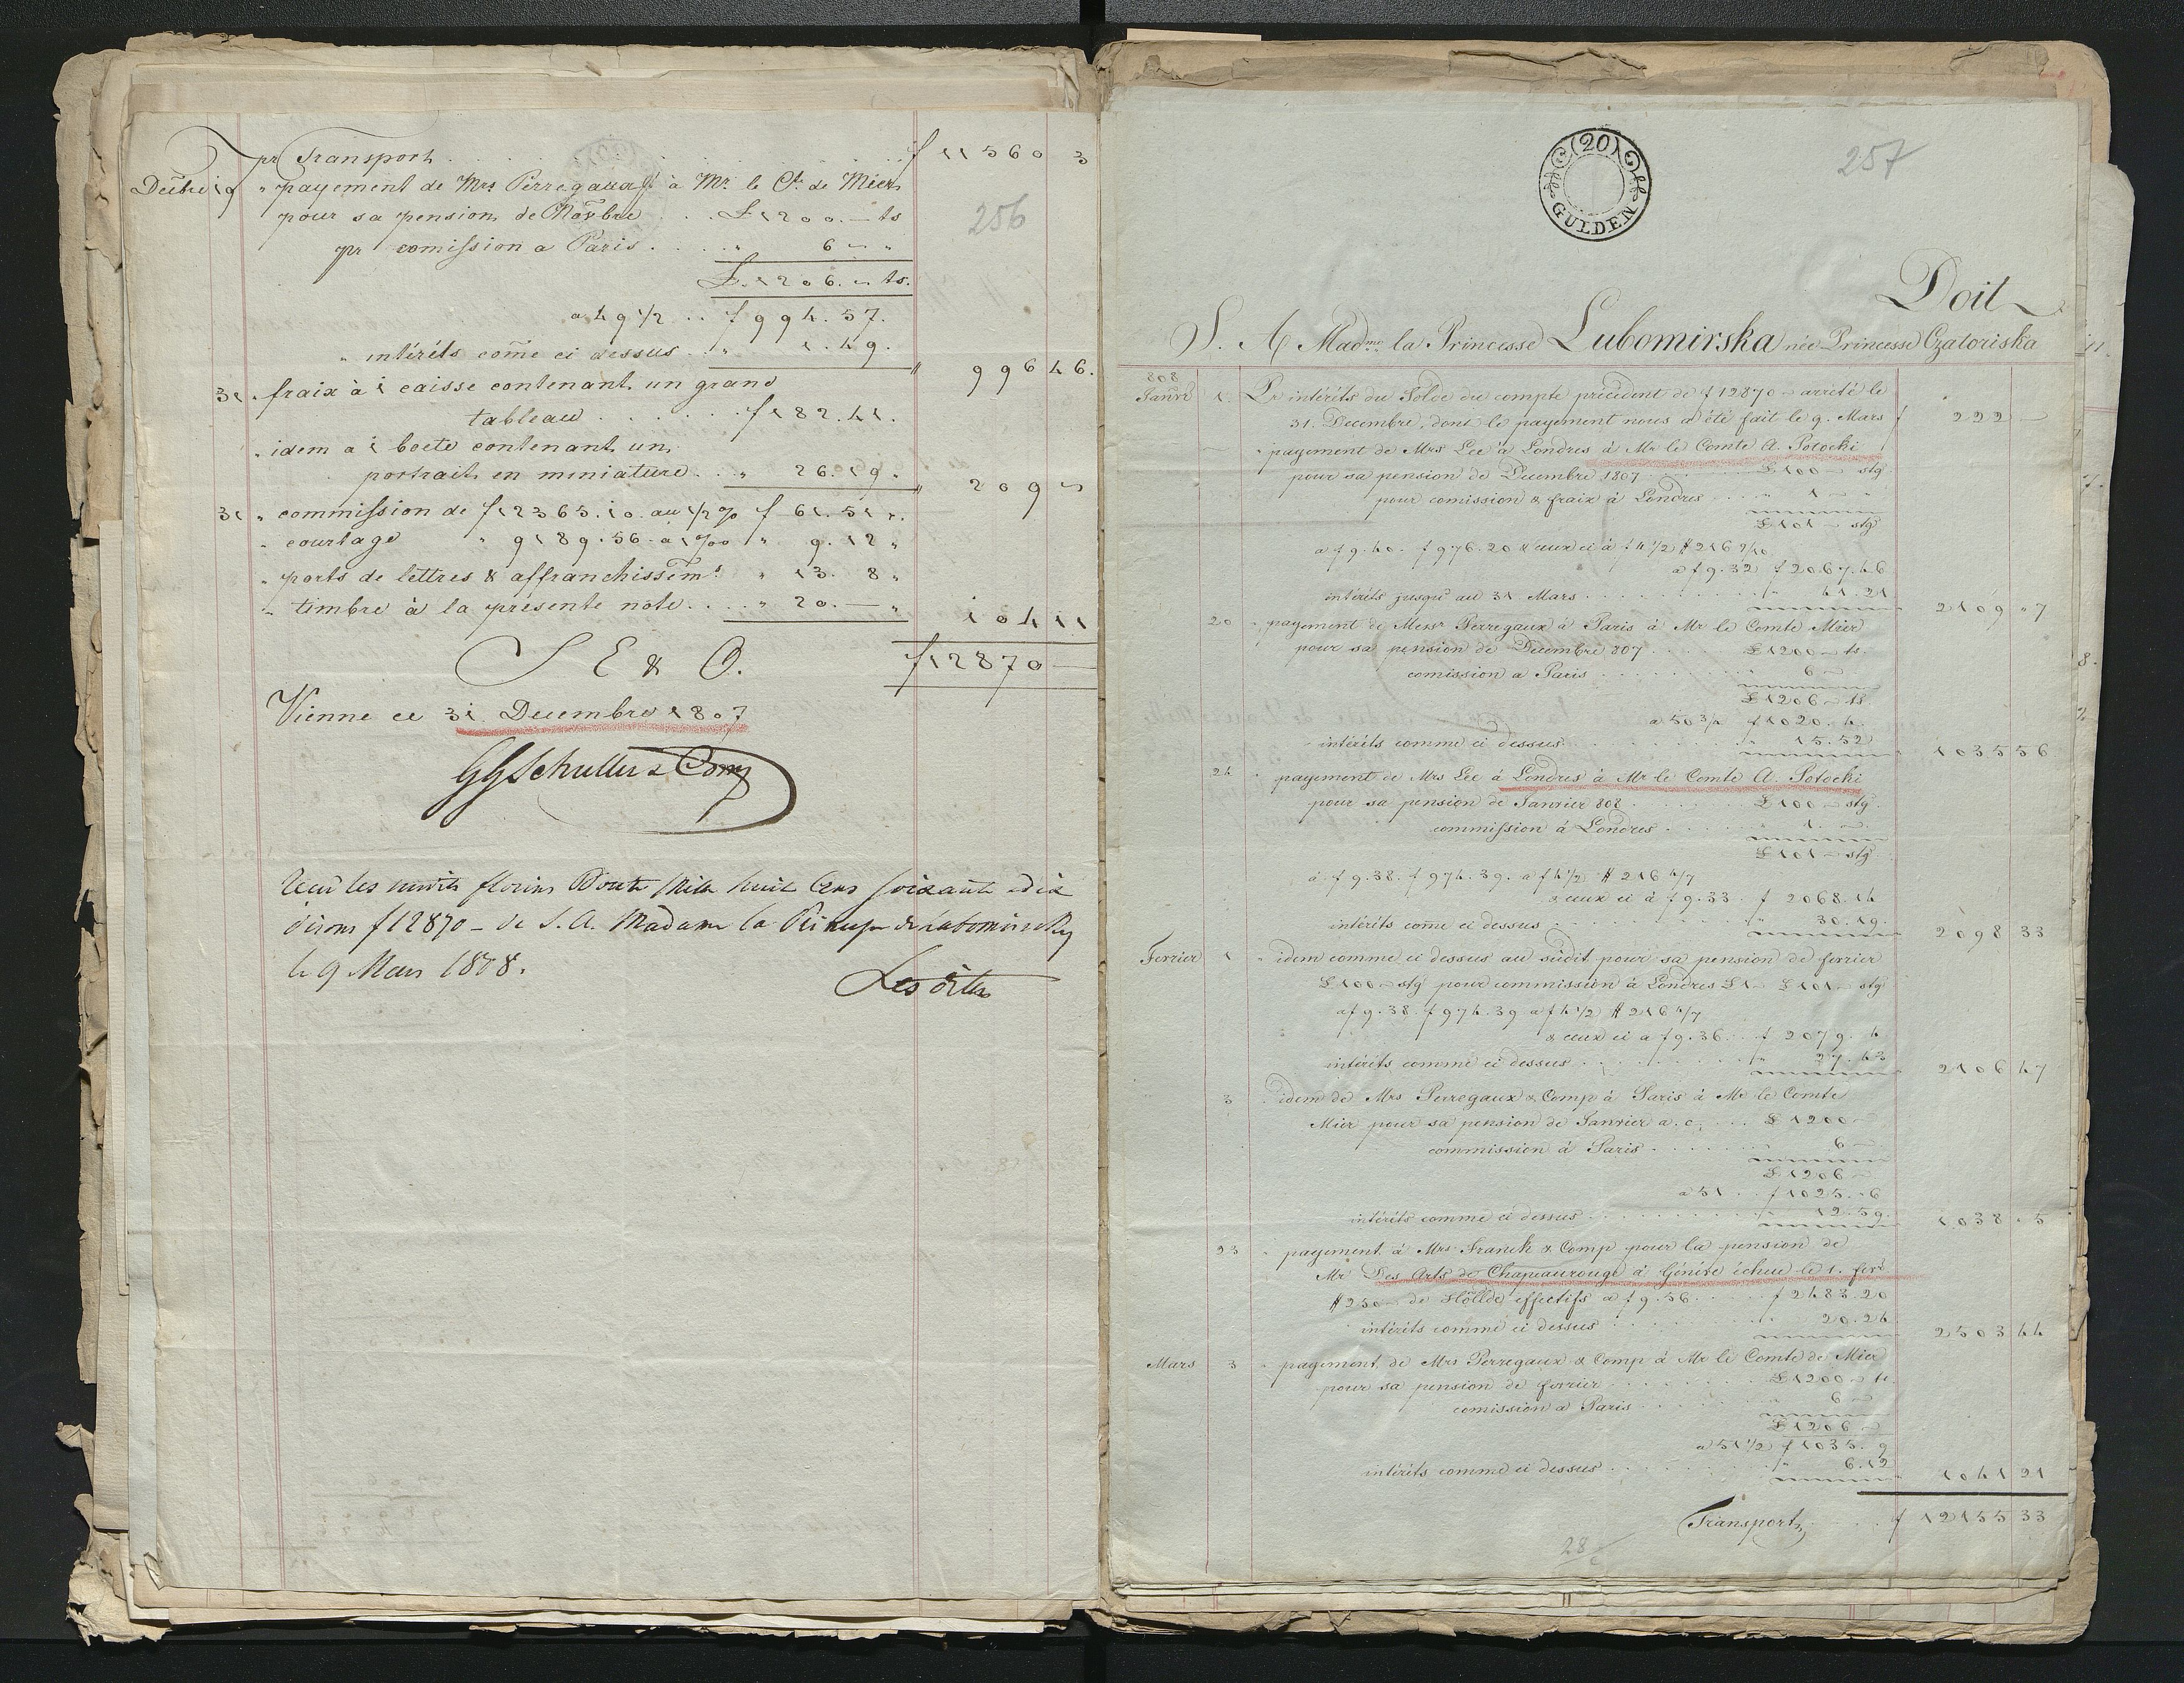 pr Transport . . . . . . . f 11560 3
Decbre 19 " payement de Mrs Perregaux à Mr. le Cte de Mier
pour sa pension de Novbre . . . £ 1200.— ts
pr comission a Paris . . . . " 6 — "
256
£ 1206. — ts.
a 49 1/2 . . f 994. 57.
" intérêts come ci dessus . . " 1. 49.
" 996 46.
31 . fraix à 1 caisse contenant un grand
tableau . . . . . . . f 182. 41.
" idem a 1 boete contenant un
portrait en miniature . . " 26. 19 "
" 209 —
31 " commission de f 12365. 10. au 1/2 % f 61. 51 ".
" courtage " 9189. 56. a 1 ‰ " 9. 12 "
" ports de lettres & affranchissemts " 13. 8 "
" timbre à la présente note . . . . " 20. — "
104 11
S E & O. f 12870 —
Vienne ce 31. Decembre 1807
GG Schuller & Comp
Recu les susdits florins Douze Mille huit Cens soixante & dix
disons f 12870 — de S. A. Madame la Princesse de Lubomirska
le 9 Mars 1808.
Les dittes
257
20
GULDEN
Doit
S. A Madme la Princesse Lubomirska née Princesse Czatoriska
808
Janvr 1. Pr intérêts du Solde du compte précédent de f 12870 — arreté le
31. Decembre, dont le payement nous a été fait le 9. Mars f 222 —
— " payement de Mrs Lee à Londres à Mr le Comte A. Potocki
pour sa pension de Decembre 1807 . . . £ 100 — stg
pour comission & fraix à Londres . . . " 1 — "
£ 101 — stg
a f 9. 40. f 976. 20 & ceux ci à f 4 1/2 # 216 9/10
a f 9. 32 f 2067. 46
intérêts jusqu'au 31 Mars . . . . . . " 41. 21
2109 " 7
20 " payement de Messr Perregaux à Paris à Mr le Comte Mier
pour sa pension de Decembre 807 . . . . £ 1200 — ts.
comission a Paris . . . . . . " 6 —
£ 1206 — ts
a 50 3/4 f 1020. 4.
" intérêts comme ci dessus . . . . . " 15. 52
1035 56
24 " payement de Mrs Lee à Londres à Mr le Comte A. Potocki
pour sa pension de Janvier 808 . . . . £ 100 — stg.
commission à Londres . . . . " 1. —
£ 101 — stg
à f 9. 38. f 974. 39. a f 4 1/2 # 216 4/7
& ceux ci à f 9. 33. f 2068. 14
intérêts come ci dessus . . . . . " 30. 19.
2098 33
Fevrier 1 " idem comme ci dessus au sudit pour sa pension de fevrier
£ 100 — stg pour commission à Londres £ 1 — £ 101 — stg
a f 9. 38. f 974. 39 a f 4 1/2 # 216 4/7
& ceux ci a f 9. 36. . f 2079. 4
intérêts comme ci dessus . . . . . " 27. 43
2106 47
3 " idem de Mrs Perregaux & Comp à Paris à Mr le Comte
Mier pour sa pension de Janvier a. c. . . . £ 1200 —
commission à Paris . . . . . " 6 —
£ 1206 —
a 51 . . f 1025. " 6
intérêts comme ci dessus . . . . . " 12. 59.
1038 " 5
23 " payement à Mrs Franck & Comp pour la pension de
Mr Des Arts de Chapeaurouge à Génève échue le 1. fevr
# 250 — de Hollde effectifs a f 9. 56. . . . . f 2483. 20
intérêts comme ci dessus . . . . . " 20. 24
2503 44
Mars 3 " payement de Mrs Perregaux & Comp à Mr le Comte de Mier
pour sa pension de fevrier . . . . . £ 1200 — ts.
comission a Paris . . . . . " 6 —
£ 1206 —
a 51 1/2 f 1035. 9
intérêts comme ci dessus . . . . . " 6. 12
1041 21
Transport . . . . f 12155 33
28